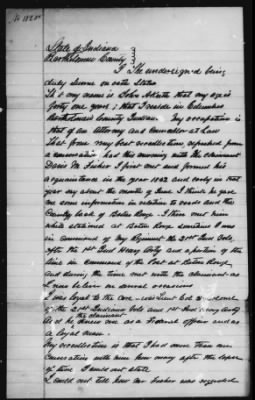 No 1820
State of Indiana
Bartholomew County
I The undersigned being
duly Sworn on oath States
That my name is John A Keith that my age is
forty one years; that I reside in Columbus
Bartholomew County Indiana. My occupation is
that of an Attorney and Councellor at Law
That from my best recollection, refreshed from
a conversation had this morning with the claimant
I first met and formed his
acquaintance in the year 1862 and early in that
year say about the month of June I think he gave
me some information in relation to roads and the
Country back of Baton Rouge I then met him
while stationed at Baton Rouge sometimes I was
in command of my Regiment the 21st Ind Vols,
after the 1st Ind Heavy Arty and a portion of the
time in command of the Post at Baton Rouge,
and during the time met with the claimant as
I now believe on several occasions
I was loyal to the was Lieut Col
of the 21st Indiana Vols and 1st Ind Hvy Arty
the claimant
knew me as a Federal officer and as
a loyal man.
My recollection is that I had more than one
conversation with him how many after the lapse
of time I could not state
I could not tell how was regarded